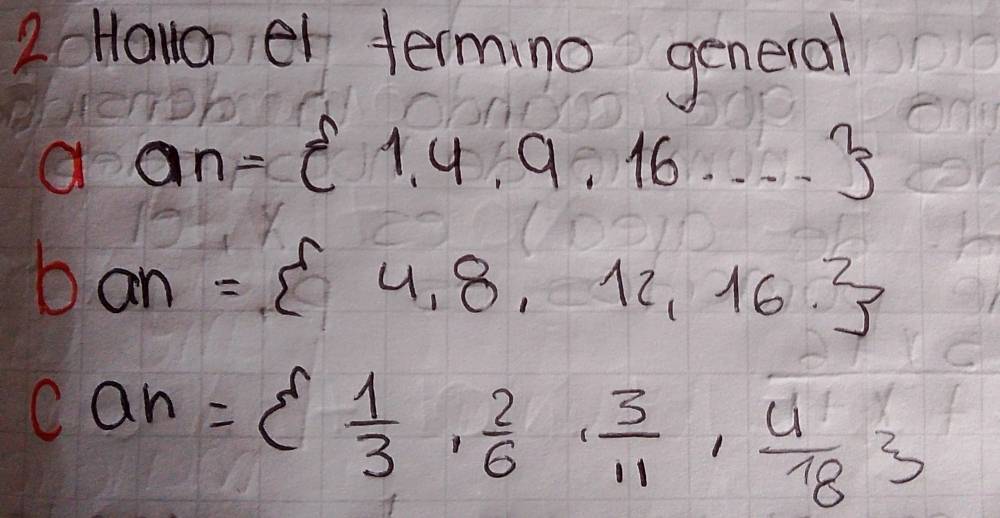 2 Halla el termino general
a an = { 1, 4, 9, 16 ..... }
b an = { 4, 8, 12, 16 . }
c an = { 1/3, 2/6, 3/11, 4/18 }